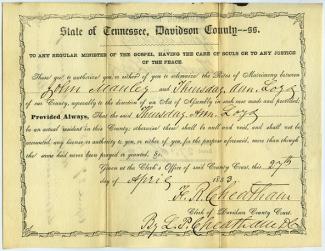 State of Tennessee, Davidson County--ss.
TO ANY REGULAR MINISTER OF THE GOSPEL, HAVING THE CARE OF SOULS OR TO ANY JUSTICE
OF THE PEACE.
These are to authorize you or either of you to solemnize the Rites of Matrimony between
John Manley and Thursday Ann Loyd
of our County, agreeably to the direction of an Act of Assembly in such case made and provided,
Provided Always, That the said Thursday Ann Loyd
be an actual resident in this County; otherwise these shall be null and void, and shall not be
accounted any license or authority to you, or either of you, for the purpose aforesaid, more than though
the same had never been prayed or granted.
Given at the Clerk's Office of said County Court, this 27th
day of April 1853.
F. R. Cheatham
Clerk of Davidson County Court.
By L. P. Cheatham DC